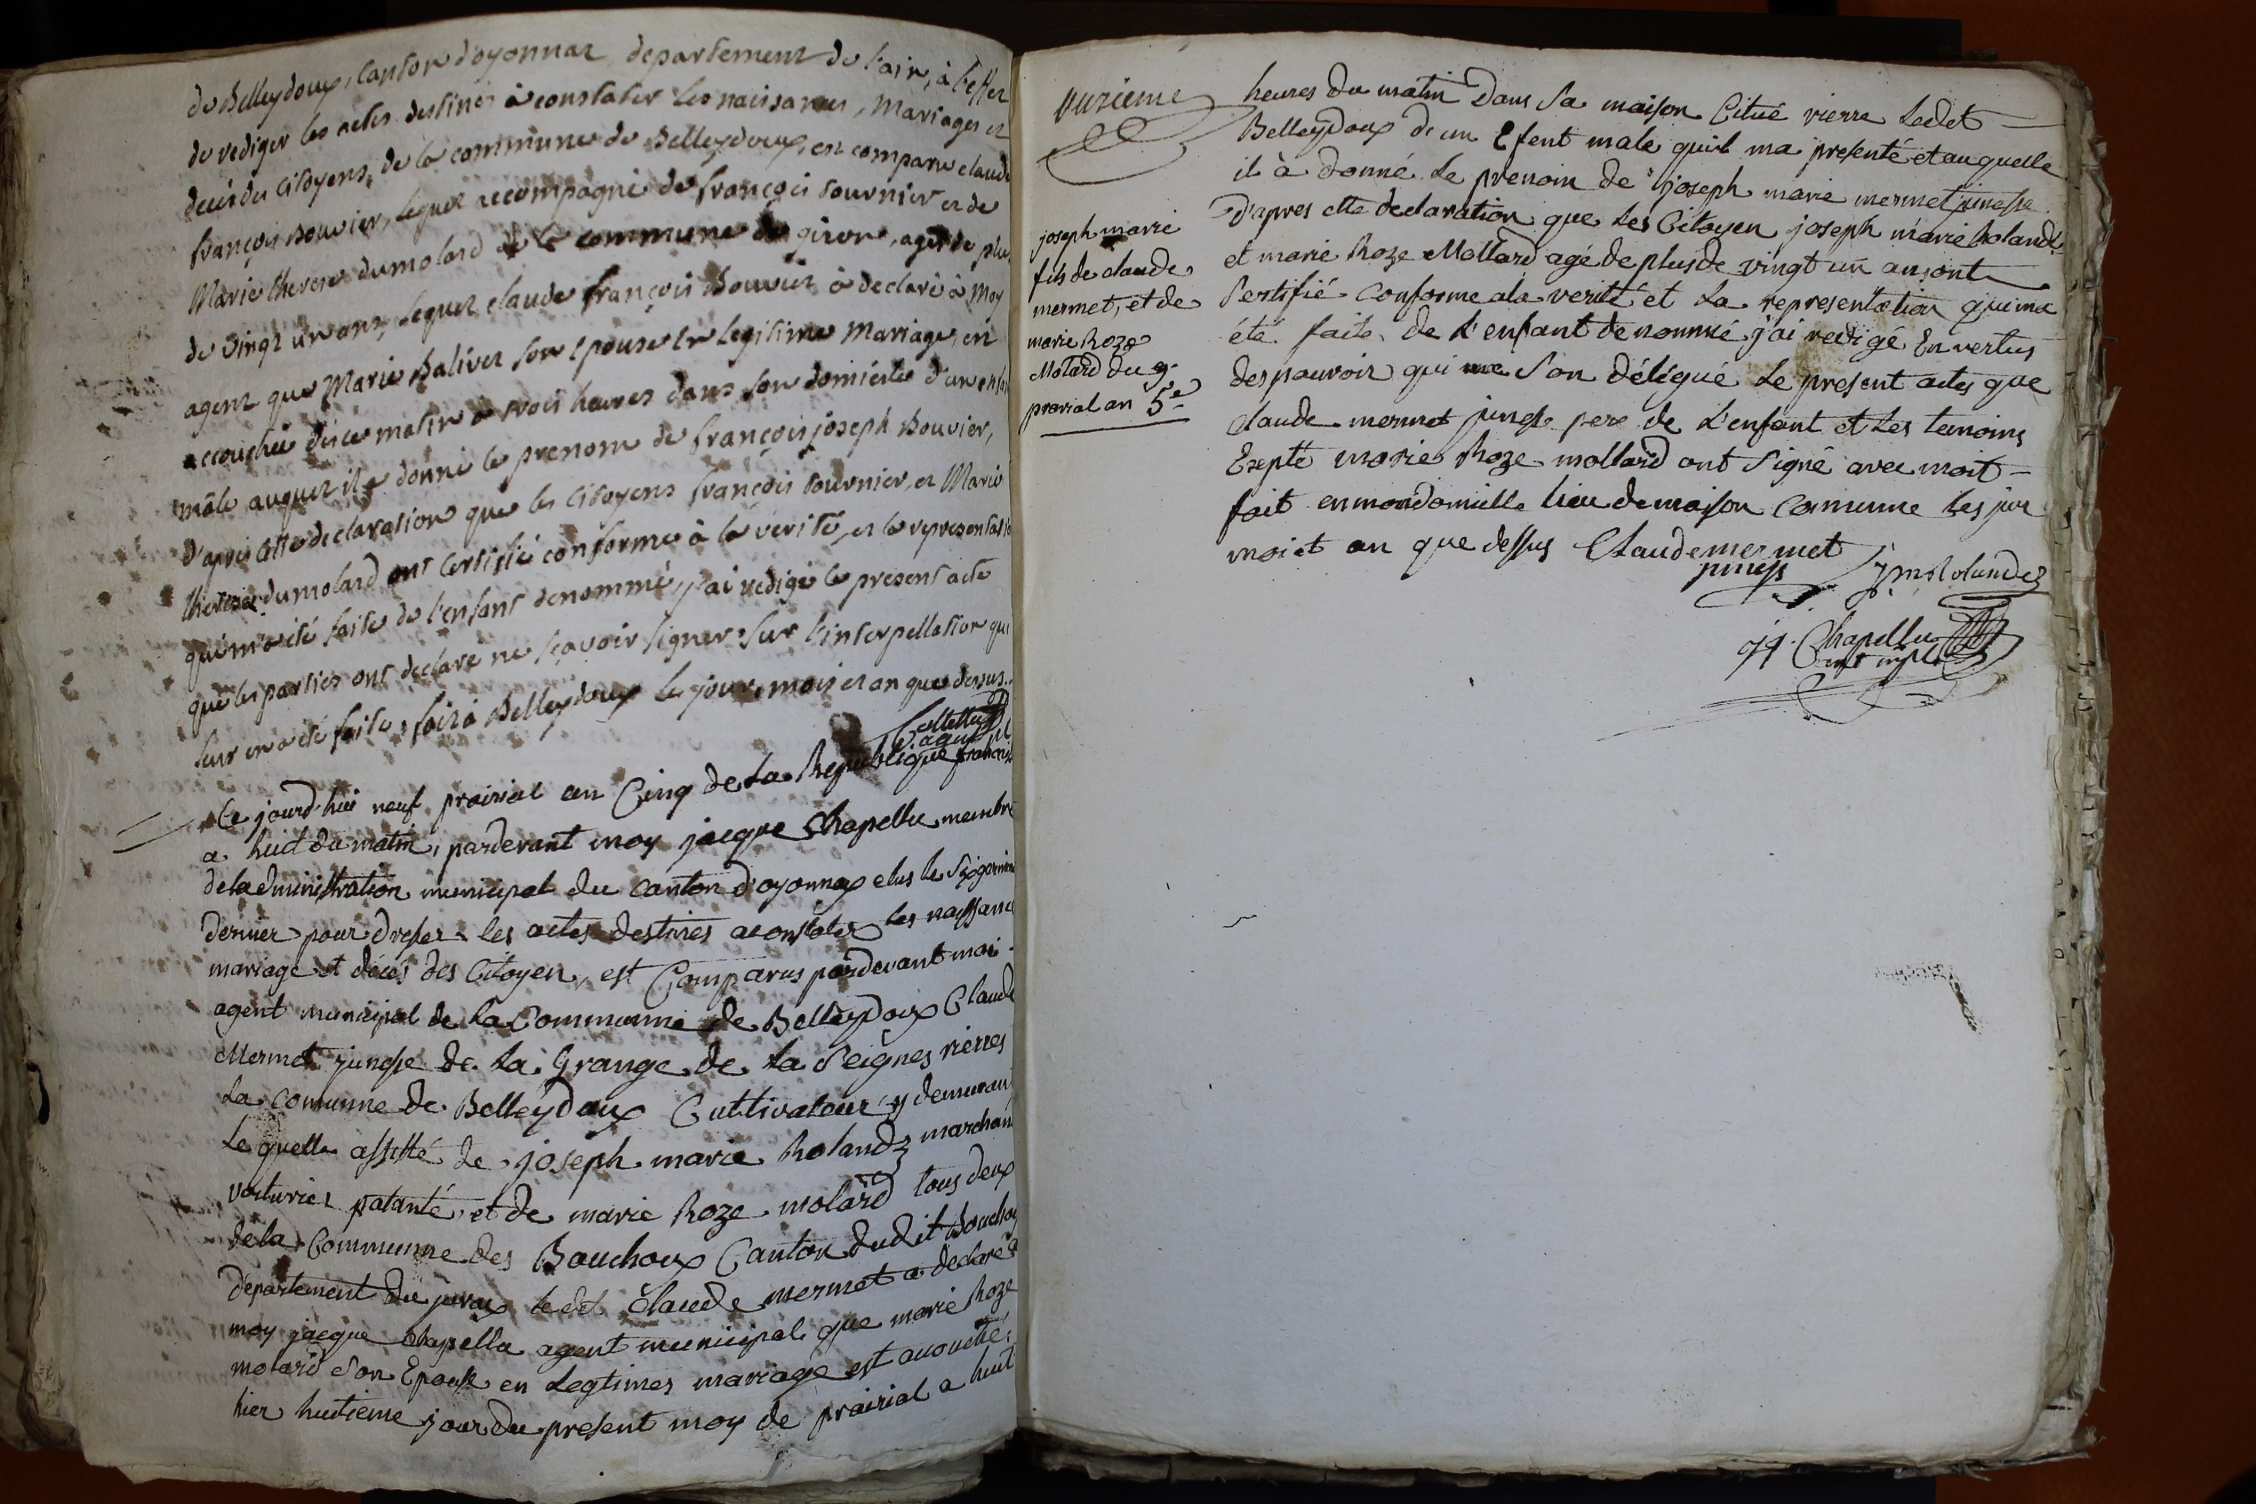 de Belleydoux, Canton d'oyonnaz, departement de l'ain, à l'effet
de rediger les actes destinés à constater les naissances, Mariages et
decés des Citoyens, de la commune de Belleydoux, est comparu claude
françois Bouvier, lequel accompagné de françois tournier et de
Marie therese dumolard de la commune de giron, agés de plus
de vingt un ans, lequel claude françois Bouvier à declaré à Moy
agent que Marie Balivet son epouse en legitime Mariage, est
accouchée dès ce matin à trois heures dans son domicile d'un enfan
mâle auquel il a donné le prenom de françois joseph Bouvier,
d'après cette declaration que les Citoyens françois tournier, et Marie
therese dumolard ont certifié conforme à la vérité, et la representatio
qui m'a été faite de l'enfant denommé, j'ai redigé le present acte
que les parties ont declaré ne sçavoir signer sur l'interpellation qui
leur en a été faite, fait à Belleydoux le jour, mois et an que dessus.
agent
Ce jourd'hui neuf prairial an Cinq de La Republique francois
a huit du matin, pardevant moy jacque Chapellu membre
deladministration municipal du Canton d'oyonnax elus le
dernier pour dresser les actes destinés aconstater les naissance
mariage et décés des Citoyen, est Comparus pardevant moi
agent municipal de La Commune de Belleydoux Claude
Mermet junesse de La Grange de La Seignes rierres
La comune de Belleydoux Cultivateur y demeuran
Le quelle assisté de joseph marie Rolandz marchan
voiturier patanté, et de marie Roze molard tous deux
dela Commune des Bouchoux Canton dudit Bouchou
departement du juras ledet Claude mermet a declaré a
moy jacque Chapellu agent municipal que marie Roze
molard Son Epouse en Legtimes mariage est acouché
hier huitieme jour du present moy de prairial a huit
onzieme
joseph marie
fils de claude
mermet, et de
marie Roze
Molard du 9.
prerial an 5e
heures du matin Dans Sa maison Citué rierre Ledet
Belleydoux de un Efent male quil ma presenté et auquelle
il à donné Le prenoin de joseph marie mermet junesse
D'apres ette declaration que Les Citoyen joseph marie Rolandz
et marie Roze Mollard agé de plus de vingt un an, ont
Sertifié Conforme ala verité et La representation qui ma
été faite de L'enfant denommé j'ai redigé En vertus
des pouvoir qui me Son délégué Le present actes que
Claude mermet junesse pere de L'enfant et Les temoins
Exepté marie Roze mollard ont Signé avec moit
fait en mondomicille lieu de maison Comune les jour
moi et an que dessus Claude mermet
juness
jmRolandez
Chapellu